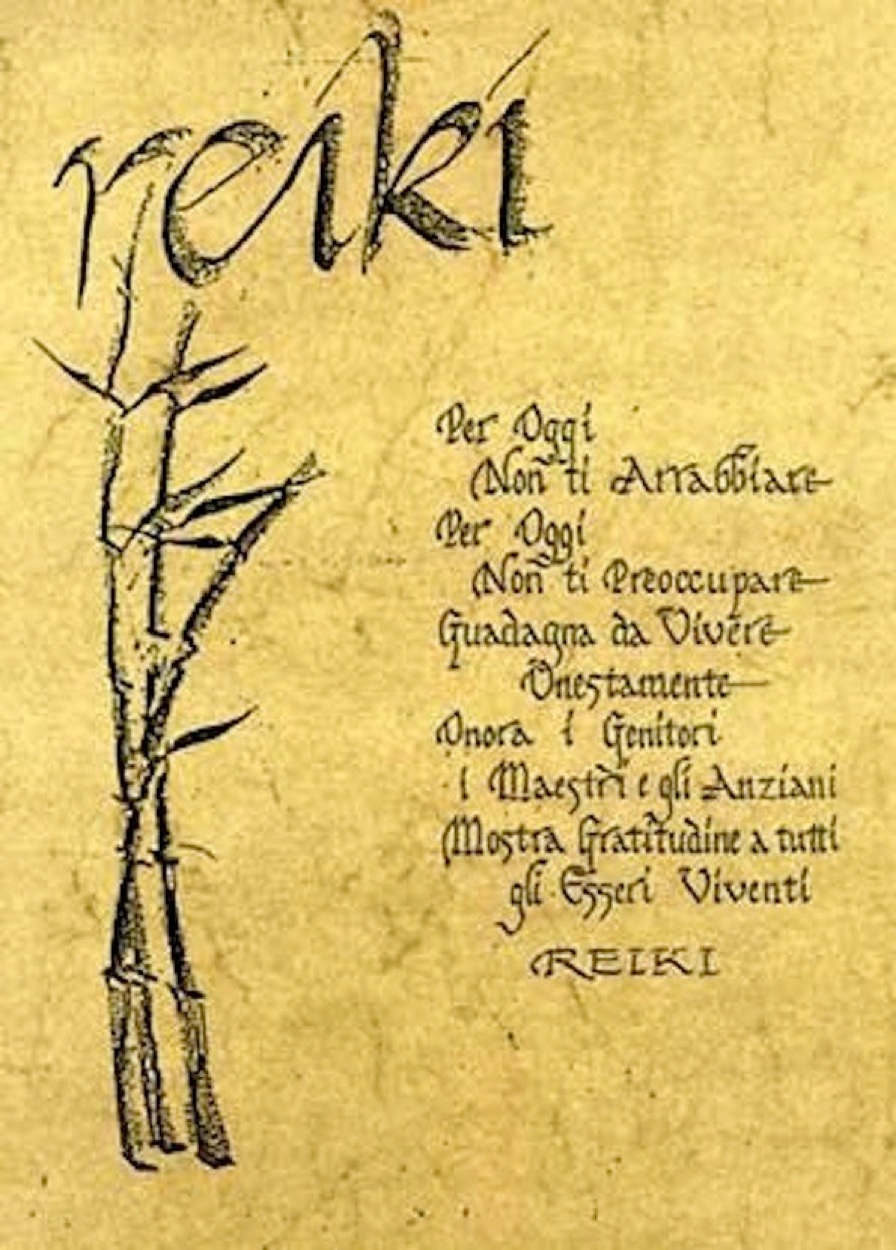 reiki
Per Oggi
Non ti Arrabbiare
Per Oggi
Non ti Preoccupare
Guadagna da Vivere
Onestamente
Onora i Genitori
i Maestri e gli Anziani
Mostra Gratitudine a tutti
gli Esseri Viventi
REIKI